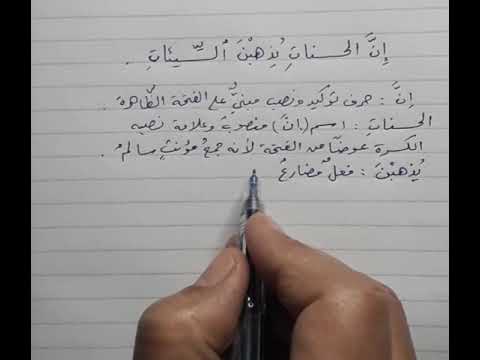 إِنَّ الحسناتِ يُذهبْنَ ٱلسَّيِّئاتِ .
إنَّ : حرف توكيد ونصب مبنيٌّ على الفتحة الظّاهرة
الحسناتِ : اسم (إنَّ) منصوبٌ وعلامة نصبه
الكسرة عوضًا من الفتحة لأنه جمعُ مؤنثٍ سالمٌ .
يُذهبْنَ : فعلٌ مضارعٌ